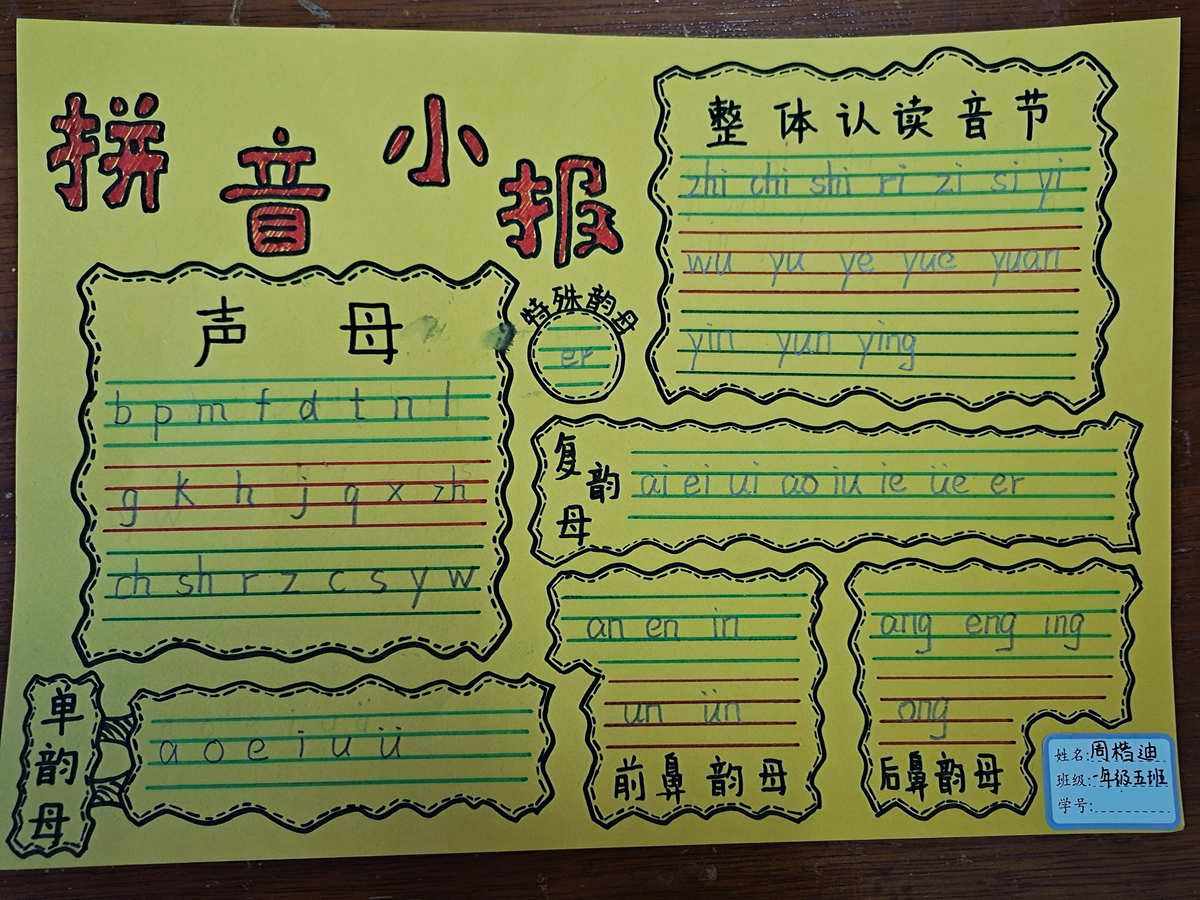 拼音小报
整体认读音节
zhi chi shi ri zi si yi
wu yu ye yue yuan
yin yun ying
声母
b p m f d t n l
g k h j q x zh
ch sh r z c s y w
特殊韵母
er
复韵母
ai ei ui ao iu ie üe er
an en in
un ün
前鼻韵母
ang eng ing
ong
后鼻韵母
单韵母
a o e i u ü
姓名:周楷迪
班级:一年级五班
学号: